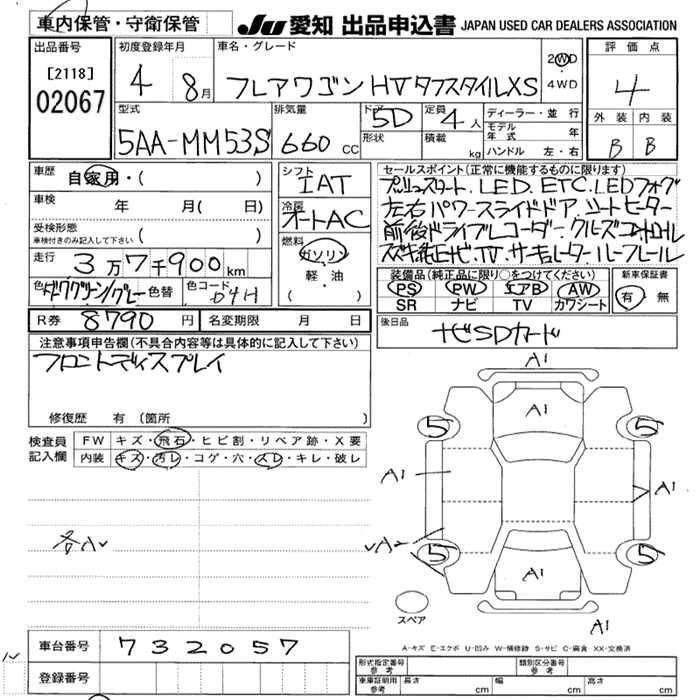 車内保管・守衛保管
JU 愛知 出品申込書 JAPAN USED CAR DEALERS ASSOCIATION
出品番号
[2118]
02067
初度登録年月
4 8月
車名・グレード
フレアワゴン HV タフスタイル XS
2WD
・
4WD
評価点
4
外装 内装
B B
型式
5AA-MM53S
排気量
660 CC
ドア
5D
形状
定員 4 人
積載 kg
ディーラー・並行
モデル年式 年
ハンドル 左・右
車歴 自家用・( )
車検 年 月( 日)
受検形態
車検付きのみ記入して下さい ( )
走行 3万7千900km
色 ダークグリーン/グレー 色替 色コード
R券 8790円 名変期限 月 日
シフト
IAT
冷房
オートAC
燃料
ガソリン
・
軽・油
( )
セールスポイント(正常に機能するものに限ります)
プッシュスタート. LED. ETC. LEDフォグ
左右パワースライドドア. シートヒーター
前後ドライブレコーダー. クルーズコントロール
スズキ純正ナビ. TV. サーキュレーター. ルーフレール
装備品(純正品に限り○をつけてください)
PS PW エアB AW
SR ナビ TV カワシート
新車保証書
有・無
後日品
ナビSDカード
注意事項申告欄(不具合内容等は具体的に記入して下さい)
フロントディスプレイ
修復歴 有(箇所 )
検査員
記入欄
FW キズ・飛石・ヒビ割・リペア跡・X要
内装 キズ・汚レ・コゲ・穴・スレ・キレ・破レ
各A
A1
A1
5 5
A1
A1
A2
5 5
A1
A1
スペア
A-キズ E-エクボ U-凹み W-補修跡 S-サビ C-腐食 XX-交換済
車台番号 732057
登録番号
形式指定番号
参考
類別区分番号
参考
車庫証明用
参考
長さ cm 幅 cm 高さ cm